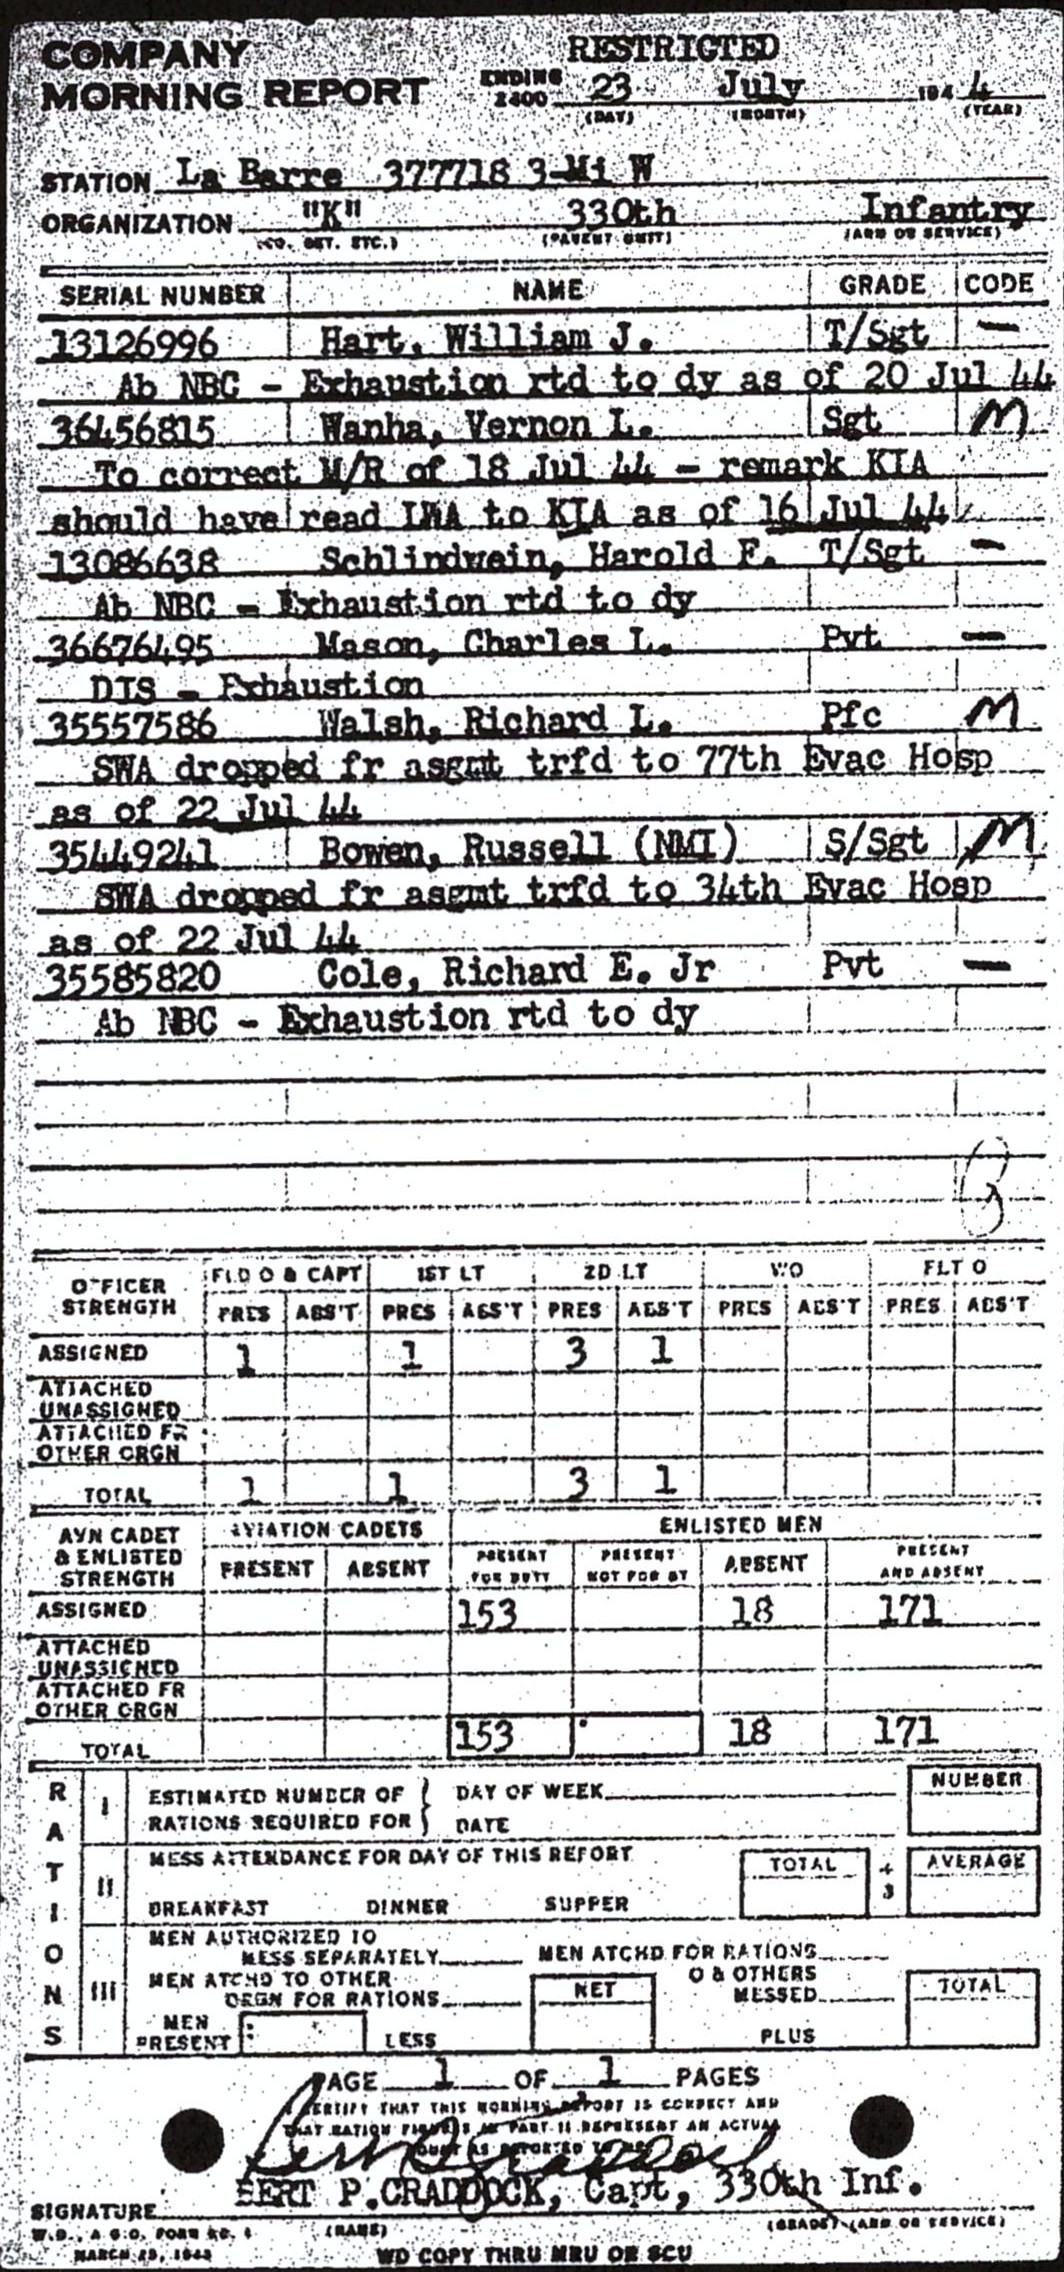 COMPANY RESTRICTED
MORNING REPORT ENDING 2400 23 July 194 4
(DAY) (MONTH) (YEAR)
STATION La Barre 377718 3-Mi W
ORGANIZATION "K" 330th Infantry
(CO. DET. ETC.) (PARENT UNIT) (ARM OR SERVICE)
SERIAL NUMBER NAME GRADE CODE
13126996 Hart, William J. T/Sgt —
Ab NBC - Exhaustion rtd to dy as of 20 Jul 44
36456815 Wanha, Vernon L. Sgt M
To correct M/R of 18 Jul 44 - remark KIA
should have read LWA to KIA as of 16 Jul 44
13086638 Schlindwein, Harold F. T/Sgt —
Ab NBC - Exhaustion rtd to dy
36676495 Mason, Charles L. Pvt —
DTS - Exhaustion
35557586 Walsh, Richard L. Pfc M
SWA dropped fr asgmt trfd to 77th Evac Hosp
as of 22 Jul 44
35449241 Bowen, Russell (NMI) S/Sgt M
SWA dropped fr asgmt trfd to 34th Evac Hosp
as of 22 Jul 44
35585820 Cole, Richard E. Jr Pvt —
Ab NBC - Exhaustion rtd to dy
OFFICER STRENGTH FLD O & CAPT 1ST LT 2D LT WO FLT O
PRES ABS'T PRES ABS'T PRES ABS'T PRES ABS'T PRES ABS'T
ASSIGNED 1 1 3 1
ATTACHED
UNASSIGNED
ATTACHED FR
OTHER ORGN
TOTAL 1 1 3 1
AVN CADET & ENLISTED STRENGTH AVIATION CADETS ENLISTED MEN
PRESENT ABSENT PRESENT FOR DUTY PRESENT NOT FOR DY ABSENT PRESENT AND ABSENT
ASSIGNED 153 18 171
ATTACHED
UNASSIGNED
ATTACHED FR
OTHER ORGN
TOTAL 153 18 171
RATIONS
I ESTIMATED NUMBER OF DAY OF WEEK NUMBER
RATIONS REQUIRED FOR DATE
II MESS ATTENDANCE FOR DAY OF THIS REPORT TOTAL ÷ 3 AVERAGE
BREAKFAST DINNER SUPPER
III MEN AUTHORIZED TO
MESS SEPARATELY MEN ATCHD FOR RATIONS
MEN ATCHD TO OTHER NET O & OTHERS TOTAL
ORGN FOR RATIONS MESSED
MEN PRESENT LESS PLUS
PAGE 1 OF 1 PAGES
I CERTIFY THAT THIS MORNING REPORT IS CORRECT AND
THAT RATION FIGURES IN PART II REPRESENT AN ACTUAL
COUNT AS REPORTED TO ME
Bert P Craddock
BERT P.CRADDOCK, Capt, 330th Inf.
SIGNATURE
(NAME) (GRADE) (ARM OR SERVICE)
W.D., A.G.O. FORM NO. 1
MARCH 29, 1943
WD COPY THRU MRU OR SCU